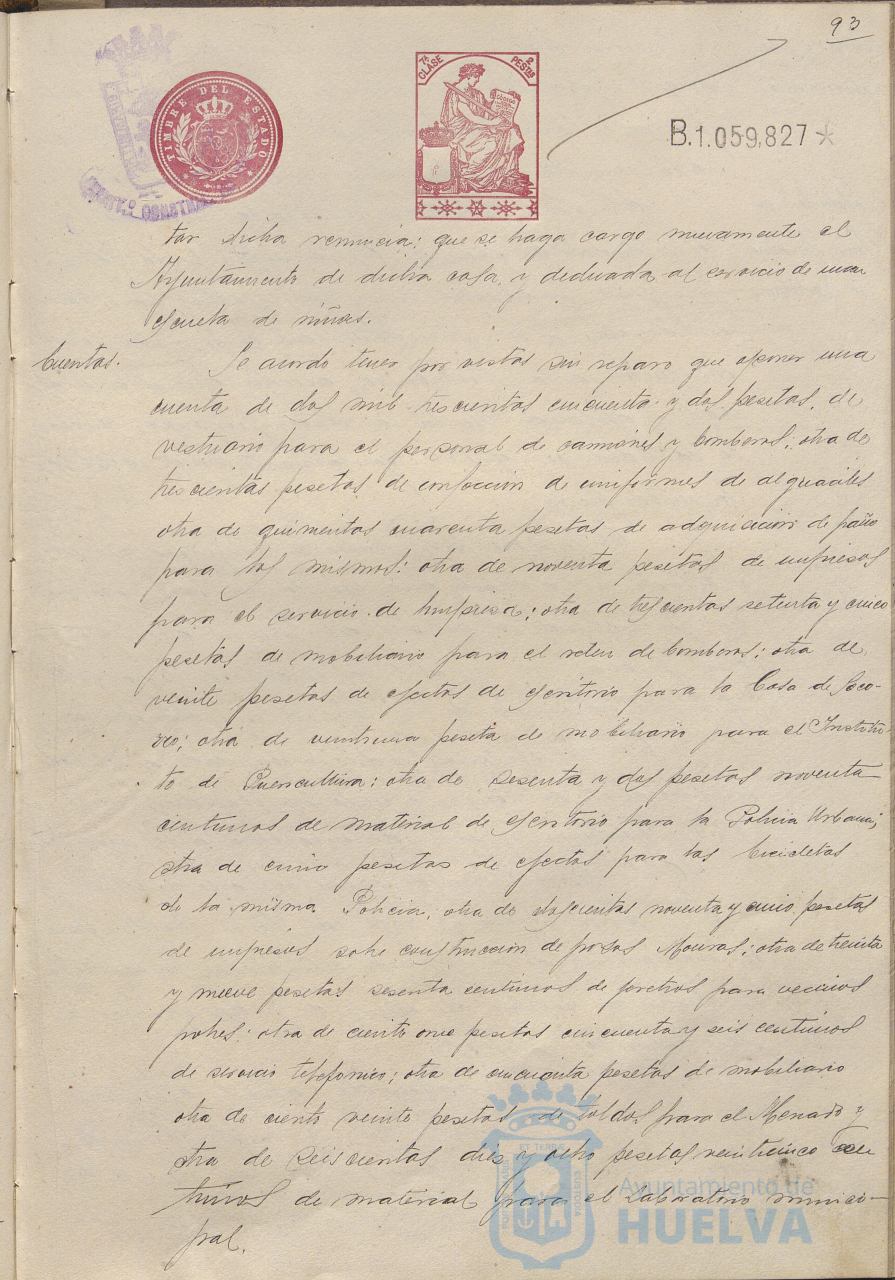 93
TIMBRE DEL ESTADO
7ª CLASE
2 PESTAS
B.1.059,827
tar dicha renuncia; que se haga cargo nuevamente el
Ayuntamiento de dicha casa, y dedicada al servicio de una
escuela de niñas.
Cuentas.
Se acordo tener por vistas sin reparo que oponer una
cuenta de dos mil trescientas cincuenta y dos pesetas, de
vestuario para el personal de camiones y bomberos; otra de
trescientas pesetas de confeccion de uniformes de alguaciles
otra de quinientas cuarenta pesetas de adquisicion de paño
para los mismos: otra de noventa pesetas de impresos
para el servicio de limpieza; otra de trescientas setenta y cinco
pesetas de mobiliario para el reten de bomberos; otra de
veinte pesetas de efectos de escritorio para la Casa de Soco-
rro; otra de veintiuna peseta de mobiliario para el Institu-
to de Puericultura: otra de sesenta y dos pesetas noventa
centimos de material de escritorio para la Policia Urbana;
otra de cinco pesetas de efectos para las bicicletas
de la misma Policia; otra de doscientas noventa y cinco pesetas
de impresos sobre construccion de pozos Mouras; otra de treinta
y nueve pesetas sesenta centimos de feretros para vecinos
pobres; otra de ciento once pesetas cincuenta y seis centimos
de servicio telefonico; otra de cincuenta pesetas de mobiliario
otra de ciento veinte pesetas de toldos para el Mercado y
otra de seiscientas diez y ocho pesetas veinticinco cen
timos de material para el Laboratorio munici-
pal.
Ayuntamiento de
HUELVA